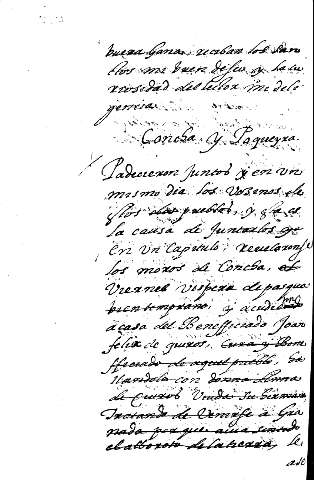 buena Gana. reciban los San
ctos mi buen deseo y la cu
riosidad del lector mi dili
gencia.
Concha y Paqueyra
Padecieron Juntos y en un
mismo dia los Vezinos de
stos dos pueblos, y esta es
la causa de Juntarlos
en un Capitulo. revelaronse
los moros de Concha, el
Viernes vispera de pasqua
bien temprano, y acudieron
a casa del Beneficiado Joan
feliz de quiros, Cura y
de aquel pueblo, ha
llandolo con donna
de Quiros Viuda su hermana
Tratando de Venirse a Gra
nada por que avia sentido
el alboroto de la tierra, le